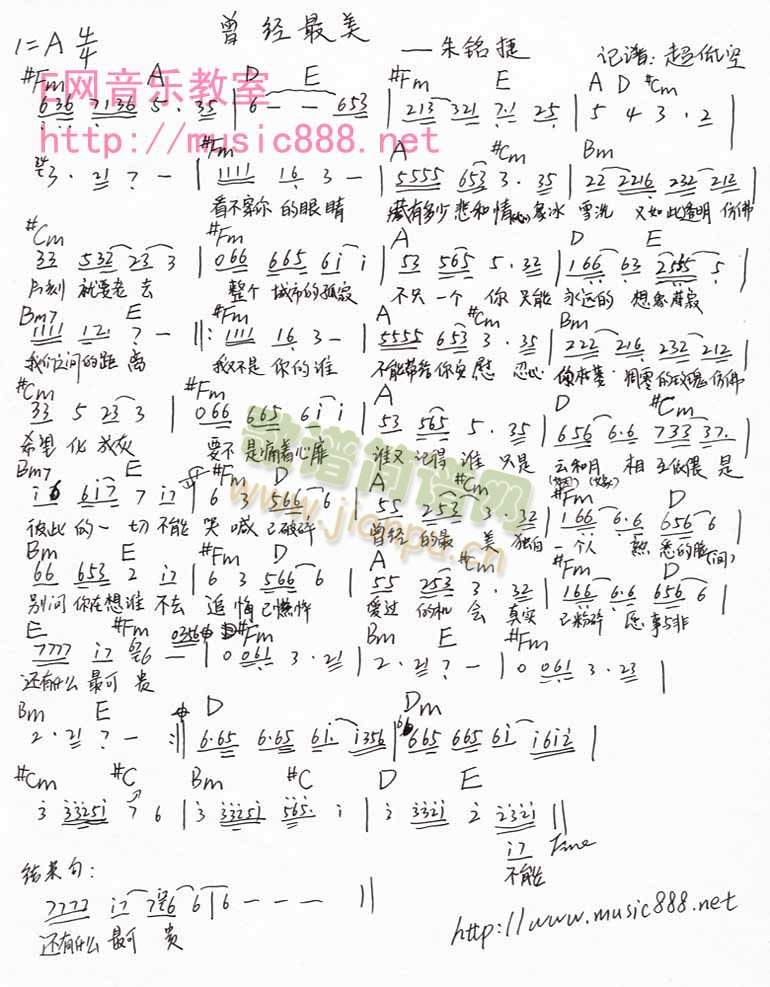 曾经最美
1=A 4/4
——朱铭捷 记谱:超低空
E网音乐教室
http://music888.net
#Fm A D E #Fm E A D #Cm
636 7136 5· 35 | 6 - - 653 | 213 321 7·1 25 | 5 4 3 · 2 |
#Fm A #Cm Bm
3· 21 7 - | 1111 16 3 - | 5555 653 3· 35 | 22 2216 232 212
看不穿你的眼睛 藏有多少悲和情 像冰雪洗 又如此透明 仿佛
#Cm #Fm A D E
33 532 23 3 | 066 665 6i i | 53 565 5· 32 | 166 63 2555 5 |
片刻就要老去 整个城市的孤寂 不只一个你 只能永远的想象
Bm7 E #Fm A #Cm Bm
1111 121 7 - ||: 1111 16 3 - | 5555 653 3· 35 | 222 216 232 212
我们之间的距离 我又不是你的谁 不能带给你安慰 忍心 凋零的玫瑰 仿佛
#Cm #Fm A D #Cm
33 5 23 3 | 066 665 6i i | 53 565 5· 35 | 656 6·6 733 37· |
希望化成灰 要不是痛着心扉 谁又记得谁 只是云和月 相互依偎 是
Bm7 E #Fm D A #Cm #Fm D
i6 6i7 7 i7 | 6 3 566 6 | 55 253 3· 32 | 166 6·6 656 6 |
彼此的一切 不能哭喊已破碎 曾经的最美 独自一个人 熟悉的
Bm E #Fm D A #Cm #Fm D
66 653 2 i7 | 6 3 566 6 | 55 253 3· 32 | 166 6·6 656 6 |
别问你在想谁 不去追悔已憔悴 爱过的机会 真实已粉碎 愿事与非
E #Fm 0356 #Fm Bm E #Fm
7777 i7 6 - | 0 061 3· 21 | 2· 21 7 - | 0 061 3· 23 |
还有什么最可贵
Bm E D Dm
2· 21 7 - :|| 6·65 6·65 6i· i356 | 665 665 6i i6i2 |
#Cm #C Bm #C D E
3 3325i 7 6 | 3 3325i 565· i | 2 332i 2 232i ||
i7 Fine
不能
结束句:
7777 i7 766 6 | 6 - - - ||
还有什么最可贵
歌谱简谱网
www.jianpu.cn
http://www.music888.net